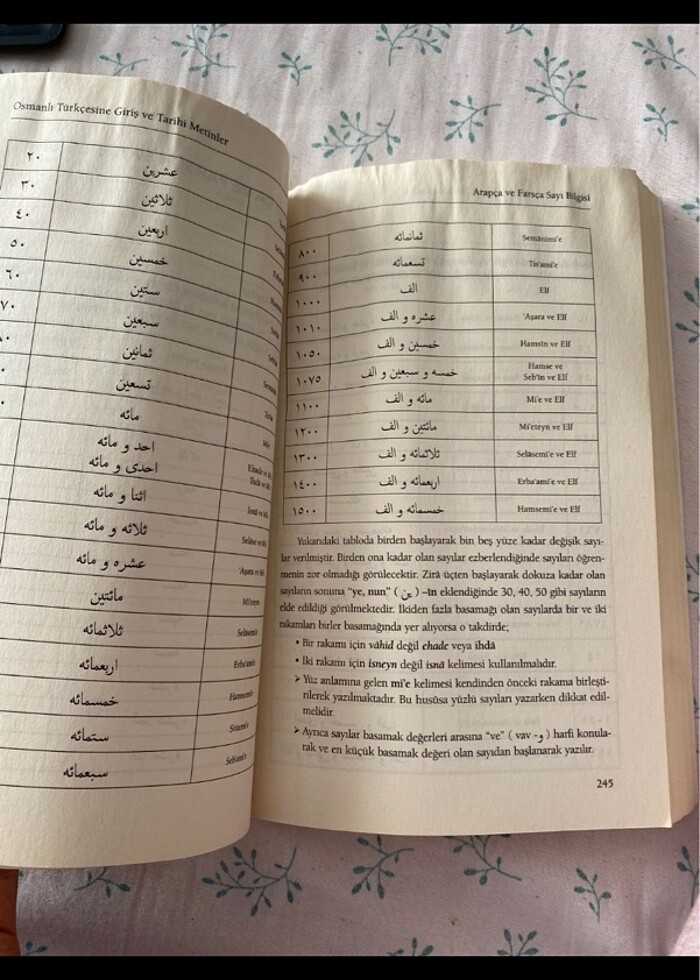 Osmanlı Türkçesine Giriş ve Tarihi Metinler
٢٠ عشرين
٣٠ ثلاثين
٤٠ اربعين
٥٠ خمسين
٦٠ ستين
٧٠ سبعين
ثمانين
تسعين
مائه
احد و مائه
احدى و مائه
اثنا و مائه
ثلاثه و مائه
عشره و مائه
مائتين Mi'eteyn
ثلاثمائه Selâsemi'e
اربعمائه Erba'ami'e
خمسمائه Hamsemi'e
ستمائه Sittemi'e
سبعمائه Seb'ami'e
Arapça ve Farsça Sayı Bilgisi
٨٠٠ ثمانمائه Semânimi'e
٩٠٠ تسعمائه Tis'ami'e
١٠٠٠ الف Elf
١٠١٠ عشره و الف 'Aşara ve Elf
١٠٥٠ خمسين و الف Hamsîn ve Elf
١٠٧٥ خمسه و سبعين و الف Hamse ve
Seb'în ve Elf
١١٠٠ مائه و الف Mi'e ve Elf
١٢٠٠ مائتين و الف Mi'eteyn ve Elf
١٣٠٠ ثلاثمائه و الف Selâsemi'e ve Elf
١٤٠٠ اربعمائه و الف Erba'ami'e ve Elf
١٥٠٠ خمسمائه و الف Hamsemi'e ve Elf
Yukarıdaki tabloda birden başlayarak bin beş yüze kadar değişik sayı-
lar verilmiştir. Birden ona kadar olan sayılar ezberlendiğinde sayıları öğren-
menin zor olmadığı görülecektir. Zirâ üçten başlayarak dokuza kadar olan
sayıların sonuna "ye, nun" ( ين ) –în eklendiğinde 30, 40, 50 gibi sayıların
elde edildiği görülmektedir. İkiden fazla basamağı olan sayılarda bir ve iki
rakamları birler basamağında yer alıyorsa o takdirde;
• Bir rakamı için vâhid değil ehade veya ihdâ
• İki rakamı için isneyn değil isnâ kelimesi kullanılmalıdır.
➤ Yüz anlamına gelen mi'e kelimesi kendinden önceki rakama birleşti-
rilerek yazılmaktadır. Bu husûsa yüzlü sayıları yazarken dikkat edil-
melidir.
➤ Ayrıca sayılar basamak değerleri arasına "ve" ( vav - و ) harfi konula-
rak ve en küçük basamak değeri olan sayıdan başlanarak yazılır.
245